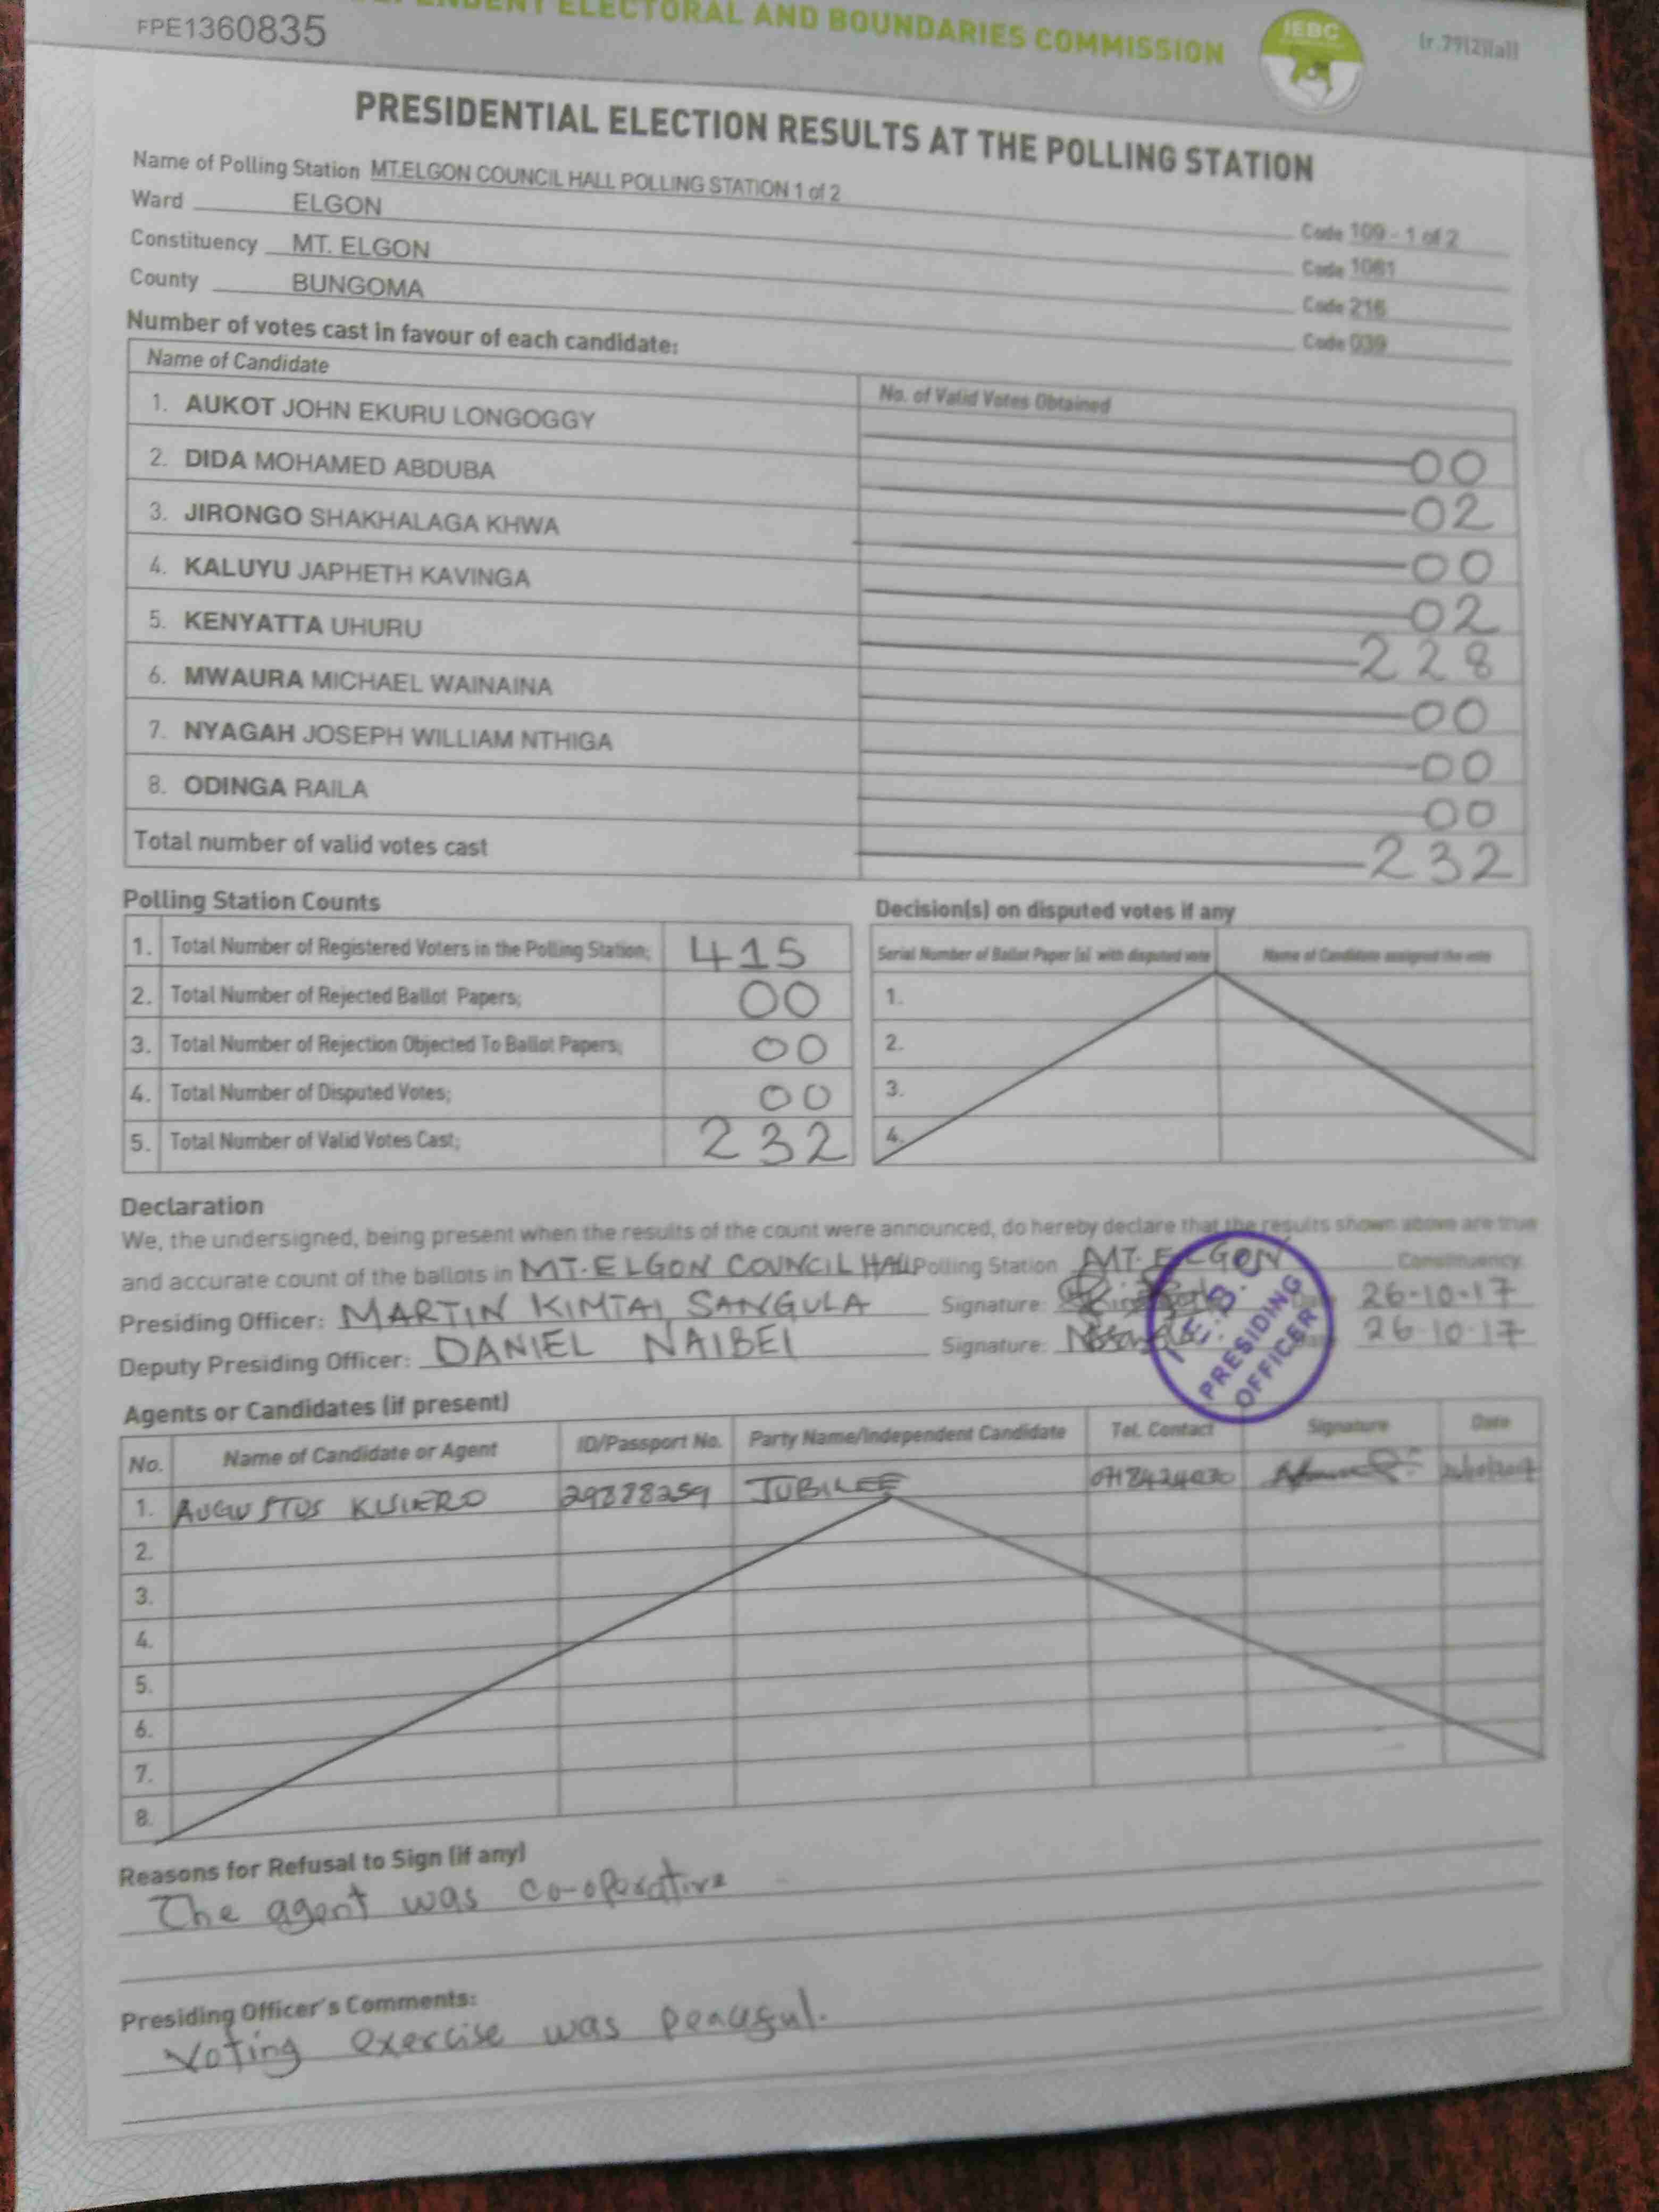 FPE1360835
ELECTORAL AND BOUNDARIES COMMISSION
IEBC
PRESIDENTIAL ELECTION RESULTS AT THE POLLING STATION
Name of Polling Station MT.ELGON COUNCIL HALL POLLING STATION 1 of 2 Code 109 - 1 of 2
Ward ELGON Code 1081
Constituency MT. ELGON Code 216
County BUNGOMA Code 039
Number of votes cast in favour of each candidate:
Name of Candidate No. of Valid Votes Obtained
1. AUKOT JOHN EKURU LONGOGGY 00
2. DIDA MOHAMED ABDUBA 02
3. JIRONGO SHAKHALAGA KHWA 00
4. KALUYU JAPHETH KAVINGA 02
5. KENYATTA UHURU 228
6. MWAURA MICHAEL WAINAINA 00
7. NYAGAH JOSEPH WILLIAM NTHIGA 00
8. ODINGA RAILA 00
Total number of valid votes cast 232
Polling Station Counts
1. Total Number of Registered Voters in the Polling Station; 415
2. Total Number of Rejected Ballot Papers; 00
3. Total Number of Rejection Objected To Ballot Papers; 00
4. Total Number of Disputed Votes; 00
5. Total Number of Valid Votes Cast; 232
Decision(s) on disputed votes if any
Serial Number of Ballot Paper (s) with disputed vote Name of Candidate assigned the vote
1.
2.
3.
4.
Declaration
We, the undersigned, being present when the results of the count were announced, do hereby declare that the results shown above are true
and accurate count of the ballots in MT. ELGON COUNCIL HALL Polling Station MT. ELGON Constituency
Presiding Officer: MARTIN KIMTAI SANGULA Signature: 26-10-17
Deputy Presiding Officer: DANIEL NAIBEI Signature: 26-10-17
I.E.B.C
PRESIDING
OFFICER
Agents or Candidates (if present)
No. Name of Candidate or Agent ID/Passport No. Party Name/Independent Candidate Tel. Contact Signature Date
1. AUGUSTUS 29878259 JUBILEE
2.
3.
4.
5.
6.
7.
8.
Reasons for Refusal to Sign (if any)
The agent was co-operative
Presiding Officer's Comments:
Voting exercise was peaceful.